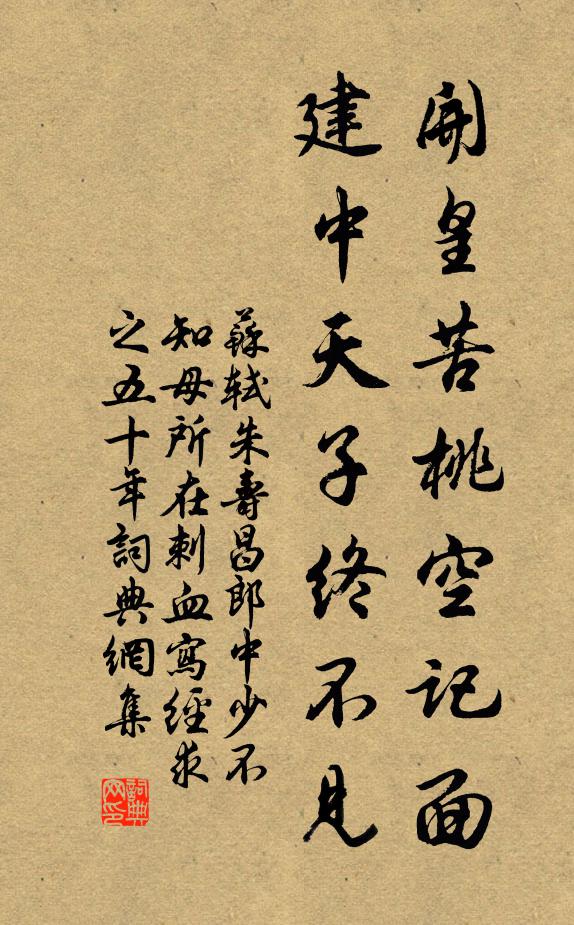 開皇苦桃空記面
建中天子終不見
蘇軾朱壽昌郎中少不
知母所在刺血寫經求
之五十年詞典網集
詞典
网印